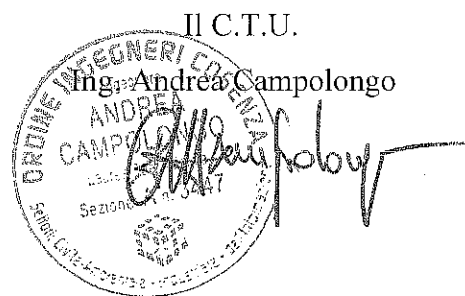 Il C.T.U.
Ing. Andrea Campolongo
ORDINE INGEGNERI COSENZA
ANDREA
CAMPOLONGO
Sezione